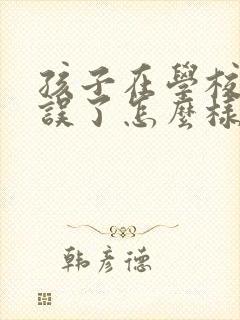 孩子在學校
誤了怎麼樣
韩彦德